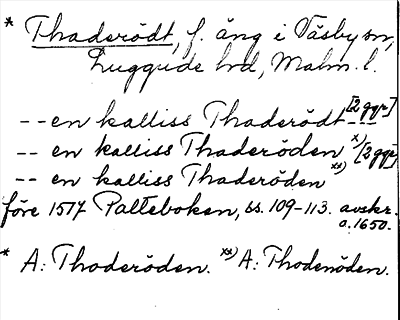 * Thaderödt, f. äng i Väsby sn,
Luggude hd, Malm. l.
-- en kalliss Thaderödt [2 ggr]
-- en kalliss Thaderöden x) [2 ggr]
-- en kalliss Thaderöden xx)
före 1517 Palteboken, ss. 109-113. avskr.
o. 1650.
* A: Thoderöden. xx) A: Thodenöden.